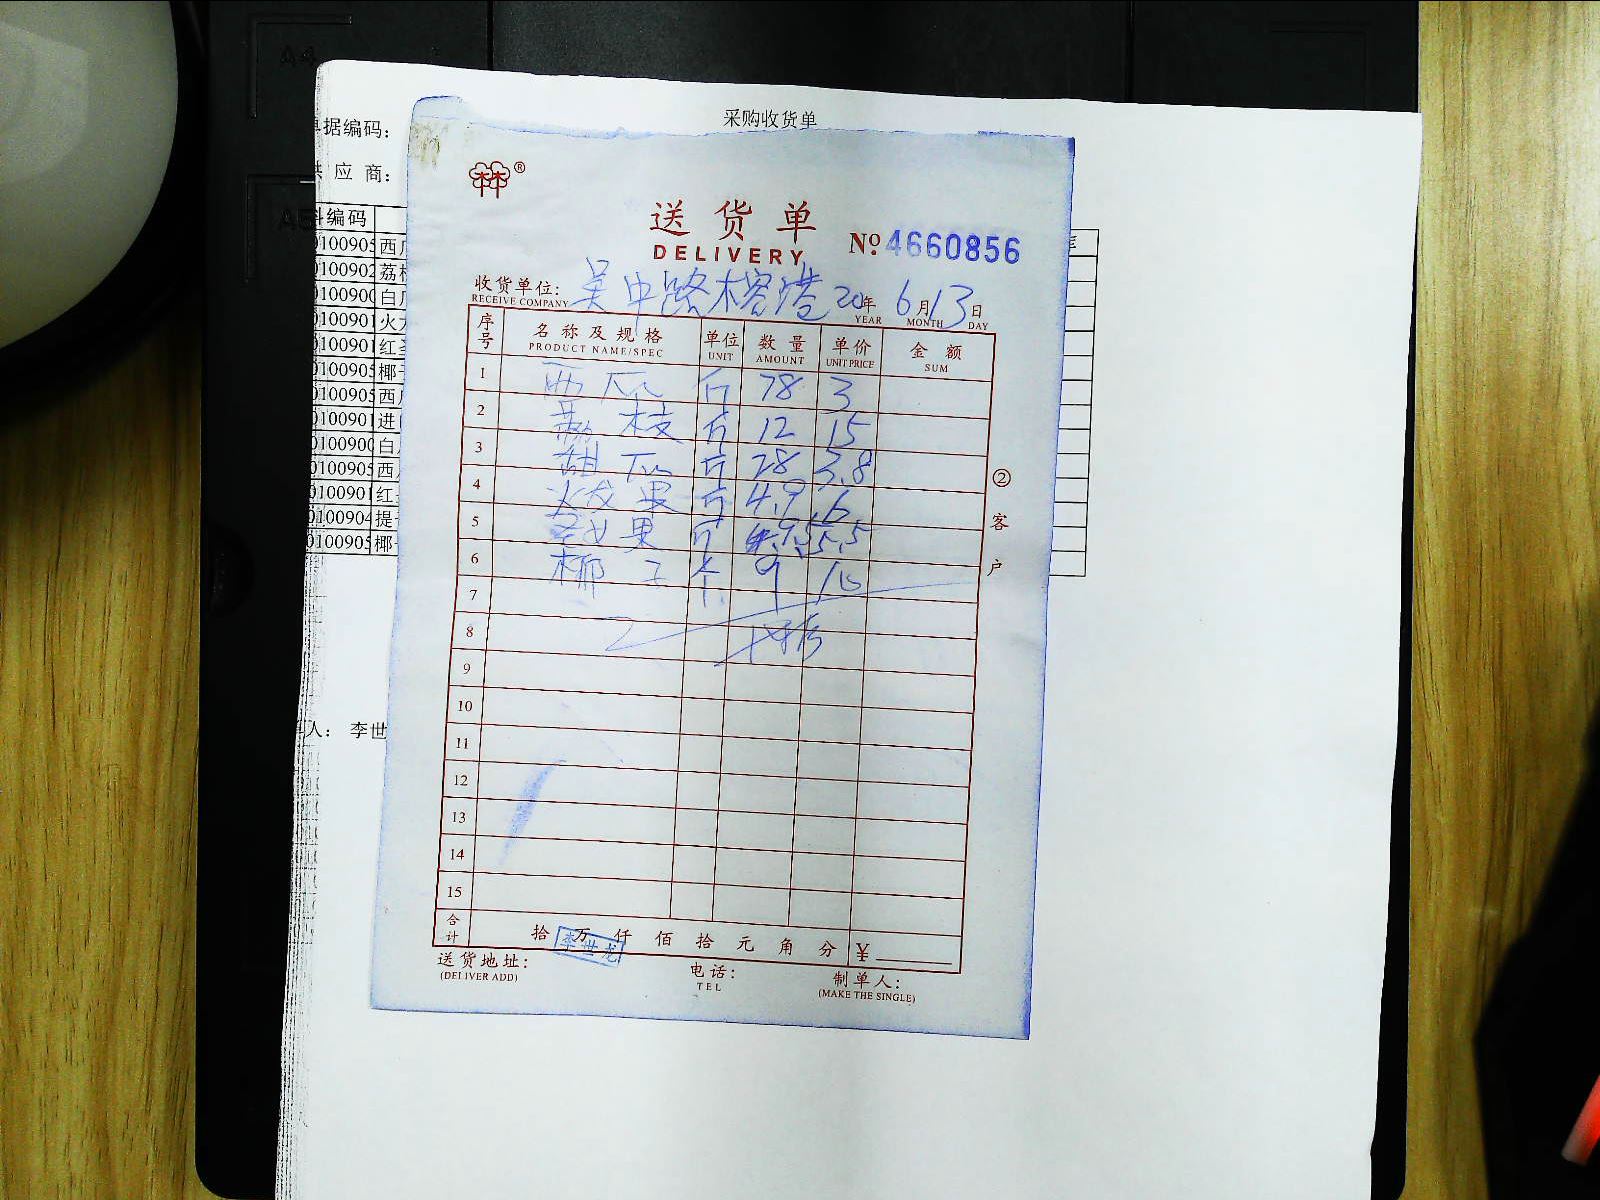 采购收货单
据编码：
供 应 商：
料编码
0100905 西瓜
0100902 荔枝
0100900 白
010090 火
010090 红
0100905 椰
0100905 西
010090 进
0100900 白
0100905 西
010090 红
0100904 提
0100905 椰
人： 李世
林 ®
送 货 单
DELIVERY
No. 4660856
收货单位： 吴中路榕港 20年 6月13日
RECEIVE COMPANY YEAR MONTH DAY
序号 名 称 及 规 格 单位 数 量 单价 金 额
PRODUCT NAME/SPEC UNIT AMOUNT UNIT PRICE SUM
1 西瓜 斤 78 3
2 荔枝 斤 12 15
3 甜瓜 斤 28 3.8
4 火龙果 斤 4.9 6
5 圣女果 斤 5.5
6 椰子 个 9 10
7
8
9
10
11
12
13
14
15
② 客 户
合计 拾 万 仟 佰 拾 元 角 分 ¥
李世龙
送货地址： 电话： 制单人：
(DELIVER ADD) TEL (MAKE THE SINGLE)